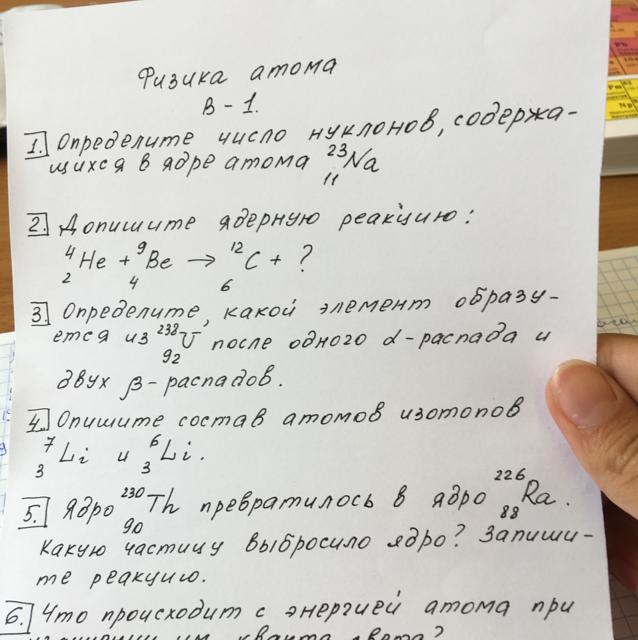 Физика атома
В-1.
1. Определите число нуклонов, содержа-
щихся в ядре атома ²³₁₁Na
2. Допишите ядерную реакцию:
⁴₂He + ⁹₄Be → ¹²₆C + ?
3. Определите, какой элемент образу-
ется из ²³⁸₉₂U после одного α-распада и
двух β-распадов.
4. Опишите состав атомов изотопов
⁷₃Li и ⁶₃Li.
5. Ядро ²³⁰₉₀Th превратилось в ядро ²²⁶₈₈Ra.
Какую частицу выбросило ядро? Запиши-
те реакцию.
6. Что происходит с энергией атома при
им кванта света?